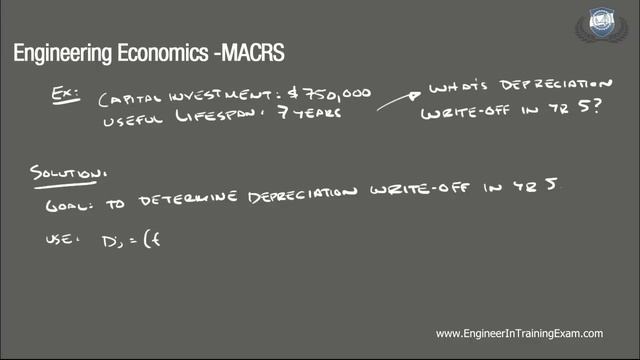 Engineering Economics -MACRS
Ex: CAPITAL INVESTMENT: $750,000
USEFUL LIFESPAN: 7 YEARS
WHAT'S DEPRECIATION
WRITE-OFF IN YR 5?
SOLUTION:
GOAL: TO DETERMINE DEPRECIATION WRITE-OFF IN YR 5
USE: Dj = (f
www.EngineerInTrainingExam.com